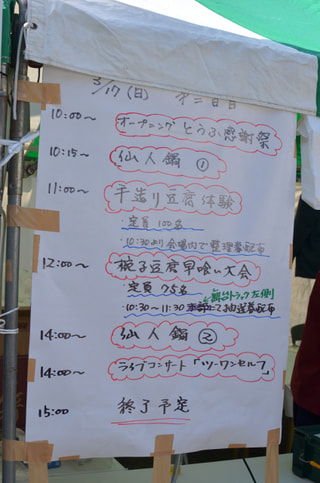 3/17 (日) 第二日目
10:00〜 オープニング とうふ感謝祭
10:15〜 仙人鍋 ①
11:00〜 手造り豆腐体験
・定員 100名
・10:30より会場内で整理券配布
12:00〜 椀子豆腐早喰い大会
・定員 75名
舞台トラック左側
・10:30〜11:30 にて抽選券配布
14:00〜 仙人鍋 ②
14:00〜 ライブコンサート「ツーワンセルフ」
15:00 終了予定